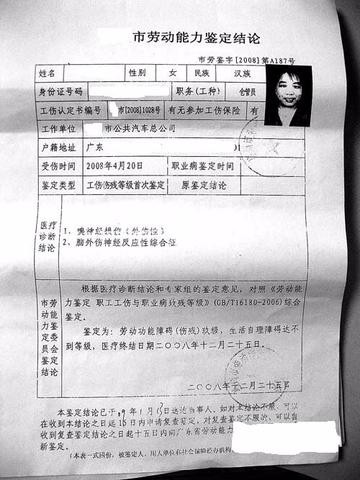 市劳动能力鉴定结论
市劳鉴字[2008]第A187号
姓名 性别 女 民族 汉族
身份证号码 职务(工种) 仓管员
工伤认定书编号 市[2008]1028号 有无参加工伤保险 有
工作单位 市公共汽车总公司
户籍地址 广东
受伤时间 2008年4月20日 职业病鉴定时间
鉴定类型 工伤伤残等级首次鉴定 原鉴定结论
医疗诊断结论
1、嗅神经损伤(外伤性)
2、脑外伤神经反应性综合征
市劳动能力鉴定委员会鉴定结论
根据医疗诊断结论和专家组的鉴定意见,对照《劳动
能力鉴定 职工工伤与职业病致残等级》(GB/T16180-2006)综合
鉴定。
鉴定为:劳动功能障碍(伤残)玖级,生活自理障碍达不
到等级,医疗终结日期二〇〇八年十二月二十五日。
二〇〇八年十二月二十五日
本鉴定结论已于 年1月 日送达当事人,如对本结论不服,可以
在收到本结论之日起15日内申请复查鉴定,对复查鉴定不服的,可以自
收到复查鉴定结论之日起十五日内向广东省劳动能力
新鉴定。
(本表一式四份,被鉴定人、用人单位和社会保险经办机构